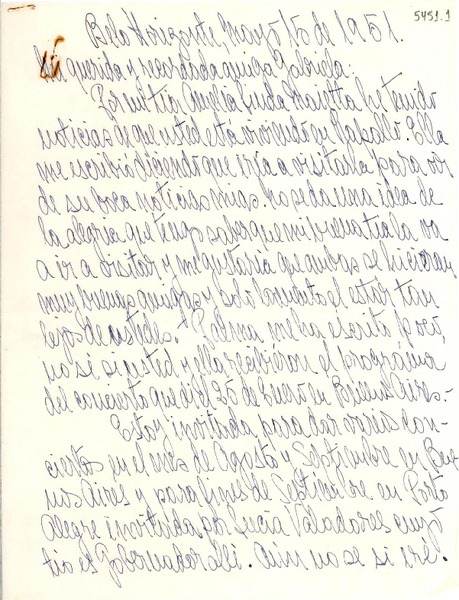 5451.1
Belo Horizonte, Mayo 15 de 1951.
Mi querida y recordada amiga Gabriela:
Por mi tía Amelia Linda he tenido
noticias de que usted está viviendo en Rapallo. Ella
me escribió diciendo que iría a visitarla para oir
de su boca noticias mias. No se da una idea de
la alegría que tengo saber que mi buena tía la va
a ir a visitar y me gustaría que ambas se hicieran
muy buenas amigas y solo lamento el estar tan
lejos de ustedes. Palma me ha escrito poco,
no sé si usted y ella recibieron el programa
del concierto que di el 25 de Enero en Buenos Aires.-
Estoy invitada para dar varios con-
ciertos en el mes de Agosto y Septiembre en Bue-
nos Aires y para fines de Septiembre en Porto
Alegre invitada por Lucía Valadares cuyo
tio es Gobernador allí. Aun no se si iré.